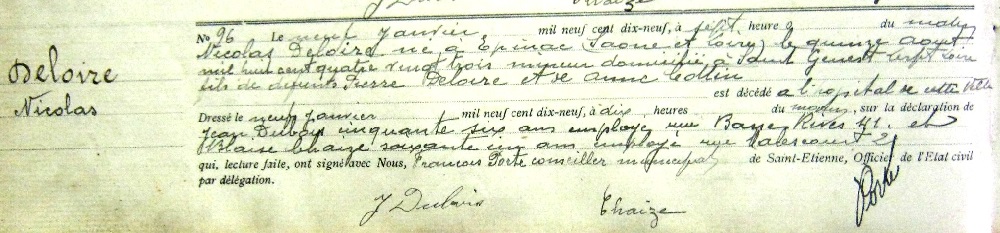 Deloire
Nicolas
No 96 Le neuf janvier, mil neuf cent dix-neuf, à sept heures du matin
Nicolas Deloire né à Epinac (Saone et Loire) le quinze aout
mil huit cent quatre vingt trois mineur domicilié à Saint Genest Lerpt Loire
fils de defunts Pierre Deloire et de anne Collin
est décédé à l'hopital de cette Ville
Dressé le neuf janvier mil neuf cent dix-neuf, à dix heures du matin, sur la déclaration de
Jean Dubois cinquante six ans employé rue Rives 41. et
Blaise Chaize soixante un ans employé rue Valescourt 2
qui, lecture faite, ont signé avec Nous, Francois Porte conseiller municipal de Saint-Etienne, Officier de l'Etat civil
par délégation.
J Dubois Chaize Porte